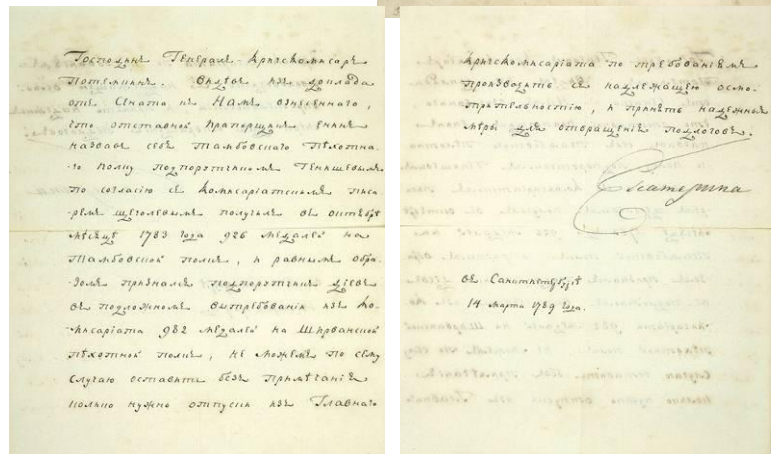 Господинъ Генералъ-Кригскомисаръ
Потемкинъ. Видѣвъ изъ доклада
отъ Сената къ Намъ взнесеннаго,
что отставной Прапорщикъ
назвавъ себя Тамбовскаго пѣхотна-
го полку подпоручикомъ Текишевымъ
по согласию съ комисариатскимъ писа-
ремъ Щеголевымъ получилъ въ октябрѣ
мѣсяцѣ 1783 года 926 медалей на
Тамбовской полкъ, и равнымъ обра-
зомъ признался подпоручикъ
въ подложномъ вытребованіи изъ Ко-
мисаріата 982 медалей на Ширванской
пѣхотной полкъ, не можемъ по сему
случаю оставить безъ примѣчанія
колико нужно отпуски изъ Главнаго
Кригскомисаріата по требованіямъ
производить съ надлежащею осмо-
трительностію, и принять надежныя
мѣры для отвращенія подлоговъ.
Екатерина
въ Санктпетербургѣ
14 Марта 1789 года.